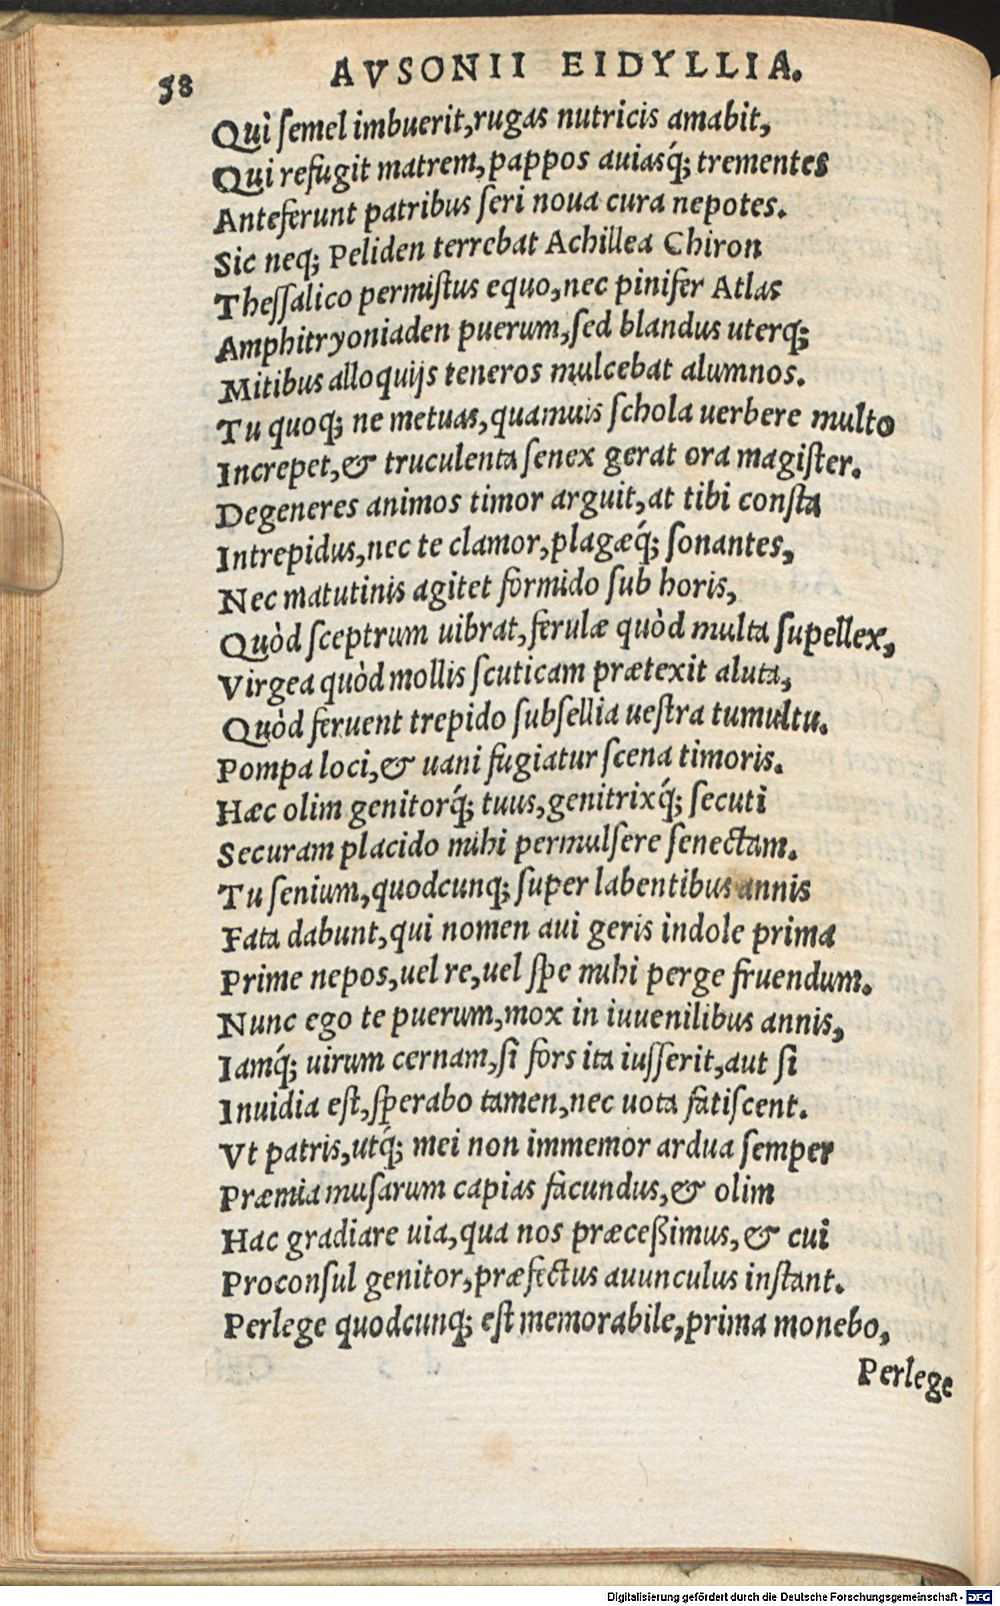 58
AVSONII EIDYLLIA.
Qui ſemel imbuerit, rugas nutricis amabit,
Qui refugit matrem, pappos auiasq́; trementes
Anteferunt patribus ſeri noua cura nepotes.
Sic neq; Peliden terrebat Achillea Chiron
Theſſalico permiſtus equo, nec pinifer Atlas
Amphitryoniaden puerum, ſed blandus uterq;
Mitibus alloquijs teneros mulcebat alumnos.
Tu quoq; ne metuas, quamuis ſchola uerbere multo
Increpet, & truculenta ſenex gerat ora magiſter.
Degeneres animos timor arguit, at tibi conſta
Intrepidus, nec te clamor, plagæq́; ſonantes,
Nec matutinis agitet formido ſub horis,
Quòd ſceptrum uibrat, ferulæ quòd multa ſupellex,
Virgea quòd mollis ſcuticam prætexit aluta,
Quòd feruent trepido ſubſellia ueſtra tumultu.
Pompa loci, & uani fugiatur ſcena timoris.
Hæc olim genitorq́; tuus, genitrixq́; ſecuti
Securam placido mihi permulſere ſenectam.
Tu ſenium, quodcunq; ſuper labentibus annis
Fata dabunt, qui nomen aui geris indole prima
Prime nepos, uel re, uel ſpe mihi perge fruendum.
Nunc ego te puerum, mox in iuuenilibus annis,
Iamq́; uirum cernam, ſi fors ita iuſſerit, aut ſi
Inuidia eſt, ſperabo tamen, nec uota fatiſcent.
Vt patris, utq́; mei non immemor ardua ſemper
Præmia muſarum capias facundus, & olim
Hac gradiare uia, qua nos præceßimus, & cui
Proconſul genitor, præfectus auunculus inſtant.
Perlege quodcunq; eſt memorabile, prima monebo,
Perlege
Digitalisierung gefördert durch die Deutsche Forschungsgemeinschaft - DFG